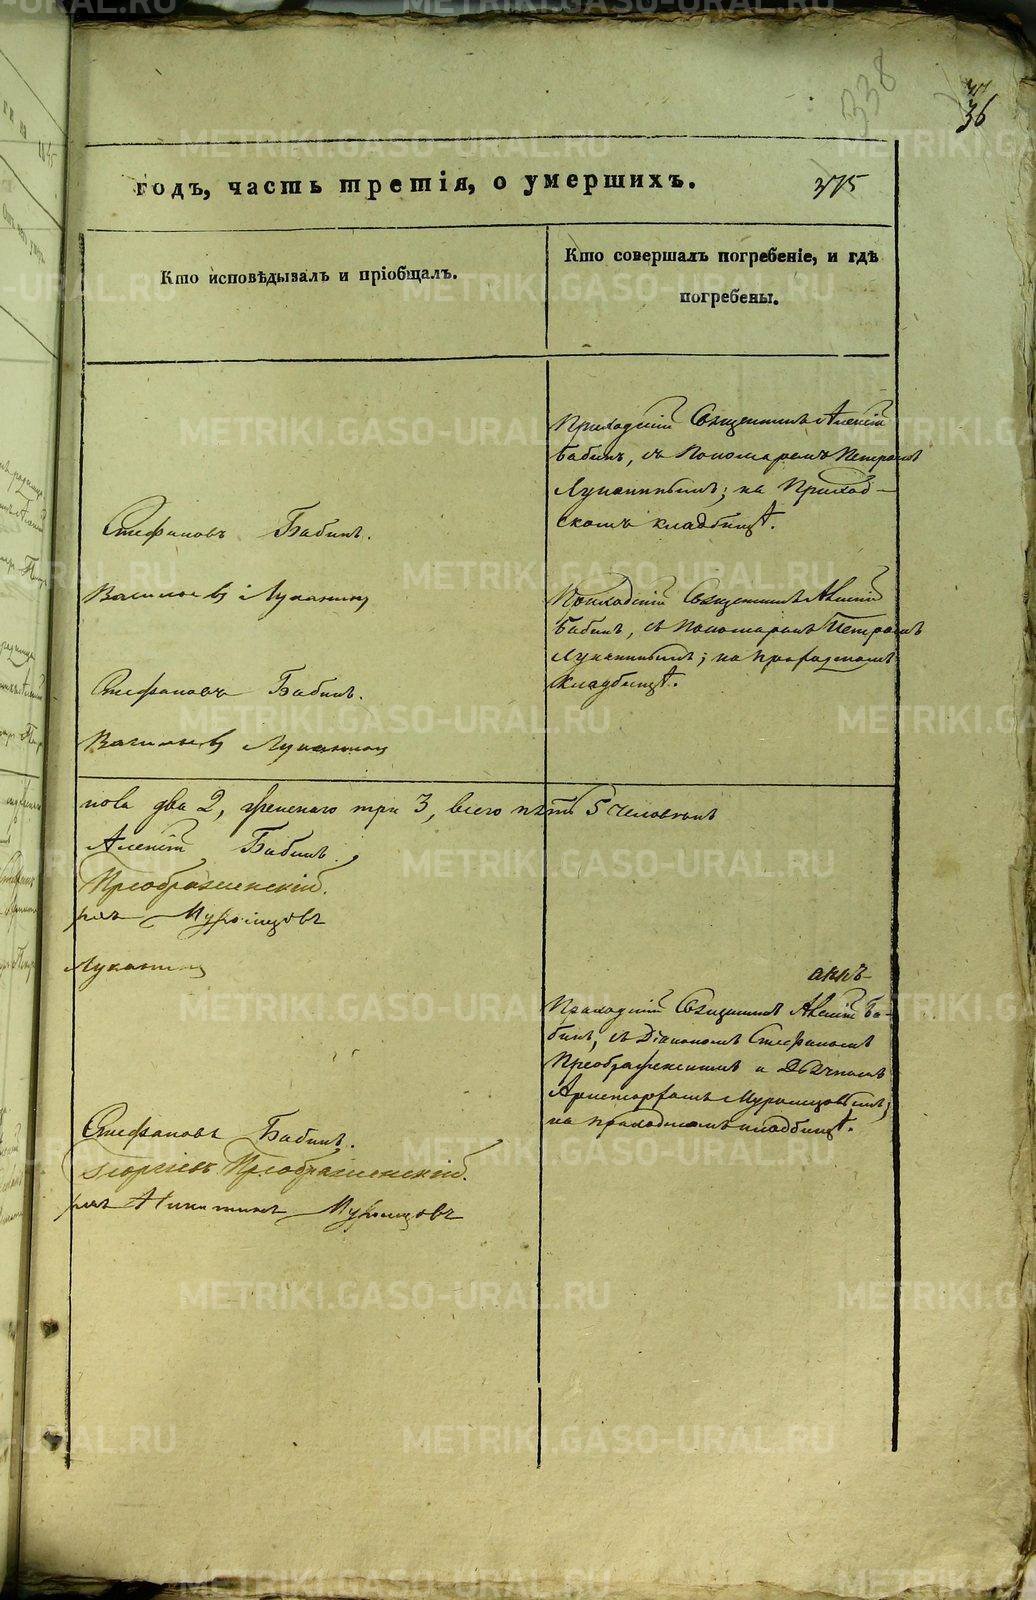 338
36
годъ, часть третія, о умершихъ.
375
Кто исповѣдывалъ и пріобщалъ.
Кто совершалъ погребеніе, и гдѣ
погребены.
Приходскій Священникъ Алексій
Бабинъ, съ Пономаремъ Петромъ
Луканинымъ; на Приход-
скомъ кладбищѣ.
Стефановъ Бабинъ.
Васильевъ Луканинъ
Приходскій Священникъ Алексій
Бабинъ, съ Пономаремъ Петромъ
Луканинымъ; на приходскомъ
кладбищѣ.
Стефановъ Бабинъ.
Васильевъ Луканинъ
пола два 2, женскаго три 3, всего пять 5 человѣкъ
Алексій Бабинъ.
Преображенскій.
Муромцовъ
Луканинъ
Приходскій Священникъ Алексій Ба-
бинъ, съ Діакономъ Стефаномъ
Преображенскимъ и Дьячкомъ
Аристархомъ Муромцовымъ;
на приходскомъ кладбищѣ.
Стефановъ Бабинъ.
Георгіевъ Преображенскій.
Никитинъ Муромцовъ
METRIKI.GASO-URAL.RU